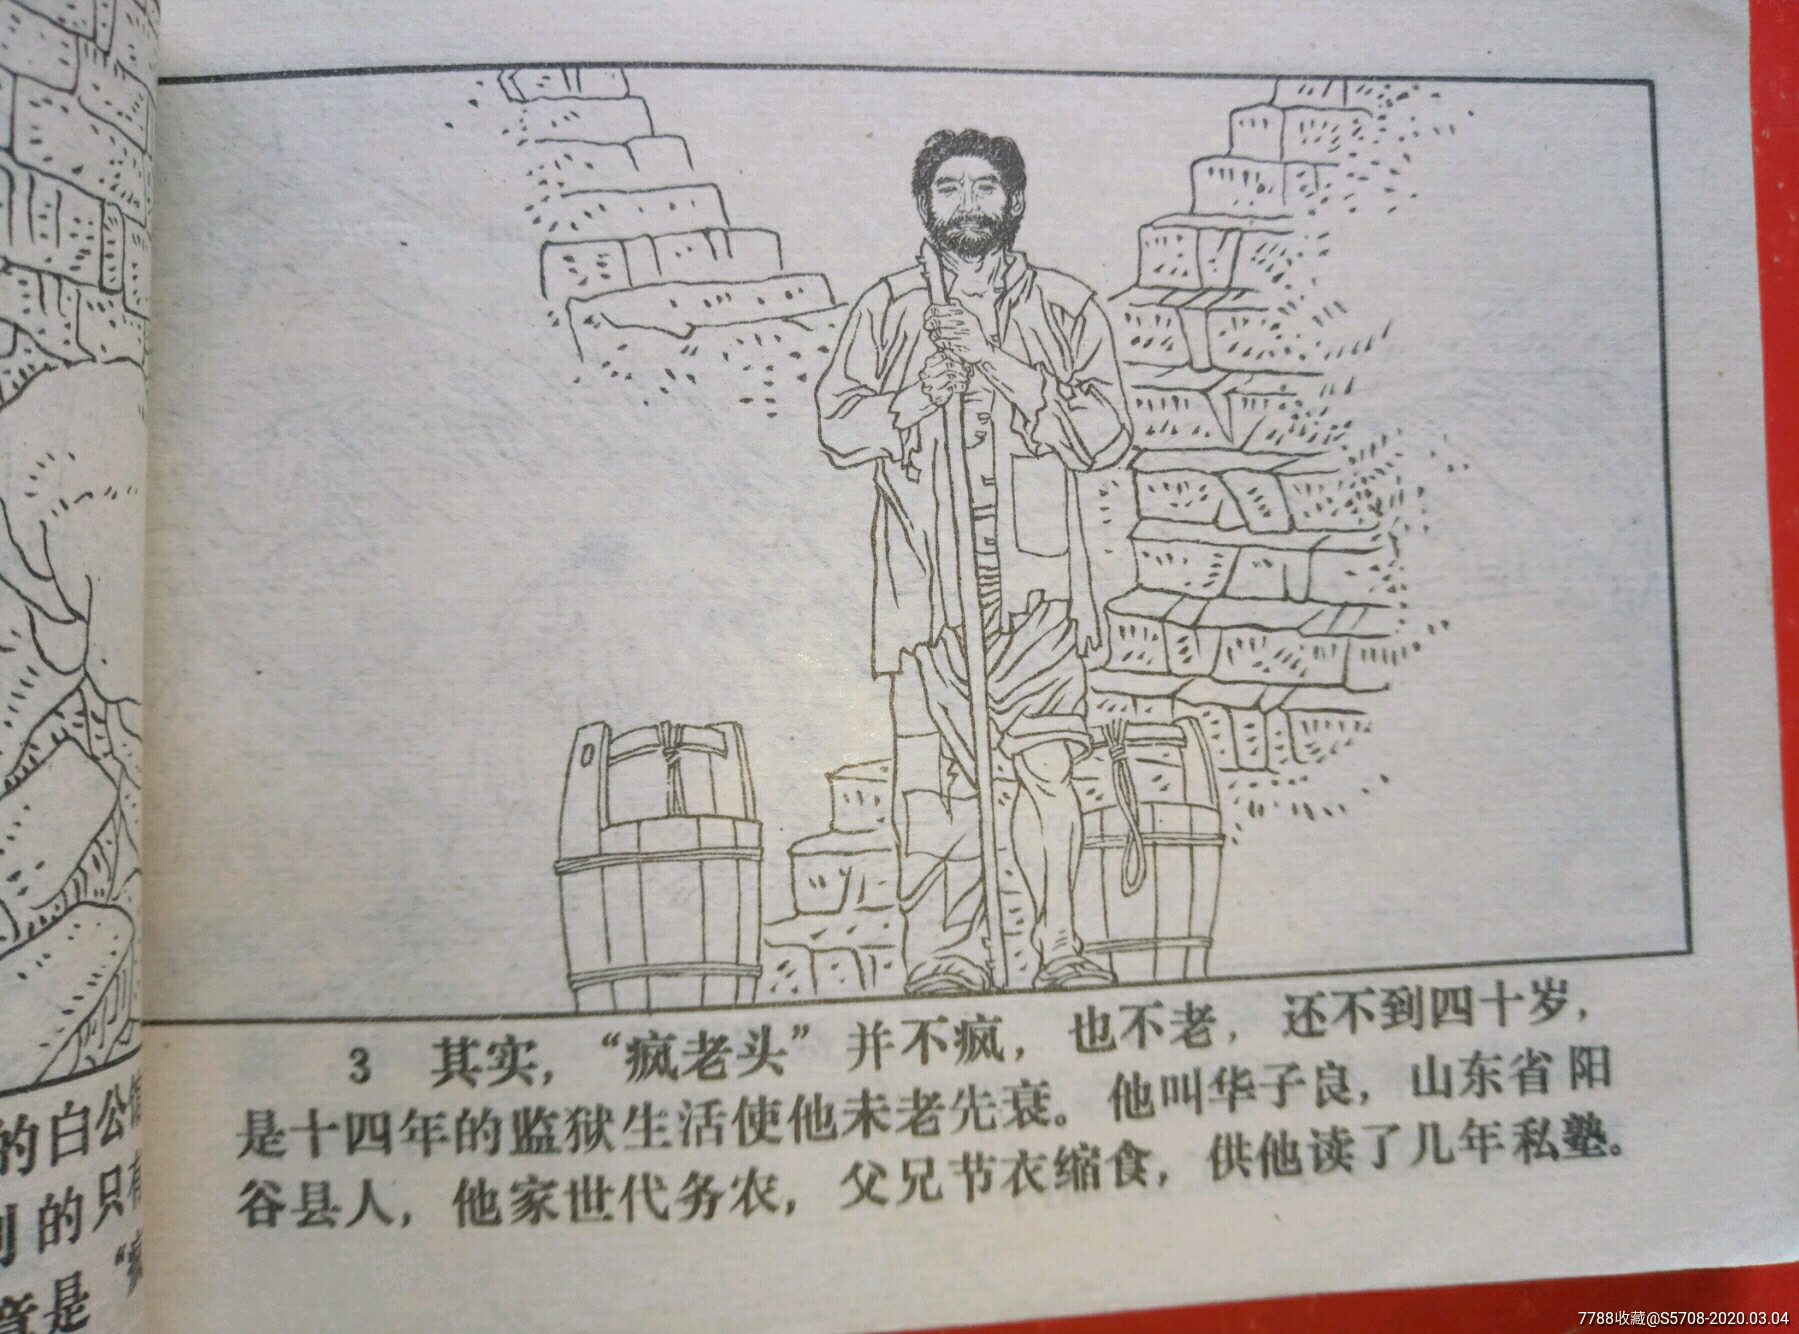 的白公
的只
是
3 其实，“疯老头”并不疯，也不老，还不到四十岁，
是十四年的监狱生活使他未老先衰。他叫华子良，山东省阳
谷县人，他家世代务农，父兄节衣缩食，供他读了几年私塾。
7788收藏@S5708-2020.03.04